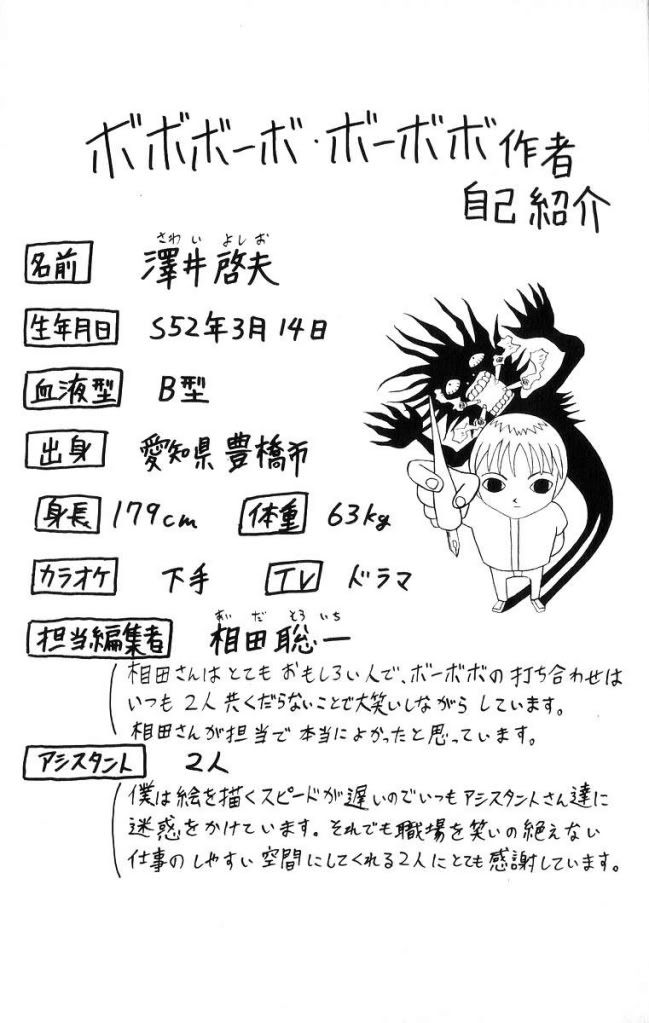 ボボボーボ・ボーボボ作者
自己紹介
さわい よしお
名前 澤井啓夫
生年月日 S52年3月14日
血液型 B型
出身 愛知県豊橋市
身長 179cm 体重 63kg
カラオケ 下手 TV ドラマ
あいだ そういち
担当編集者 相田聡一
相田さんはとてもおもしろい人で、ボーボボの打ち合わせは
いつも2人共くだらないことで大笑いしながらしています。
相田さんが担当で本当によかったと思っています。
アシスタント 2人
僕は絵を描くスピードが遅いのでいつもアシスタントさん達に
迷惑をかけています。それでも職場を笑いの絶えない
仕事のしやすい空間にしてくれる2人にとても感謝しています。